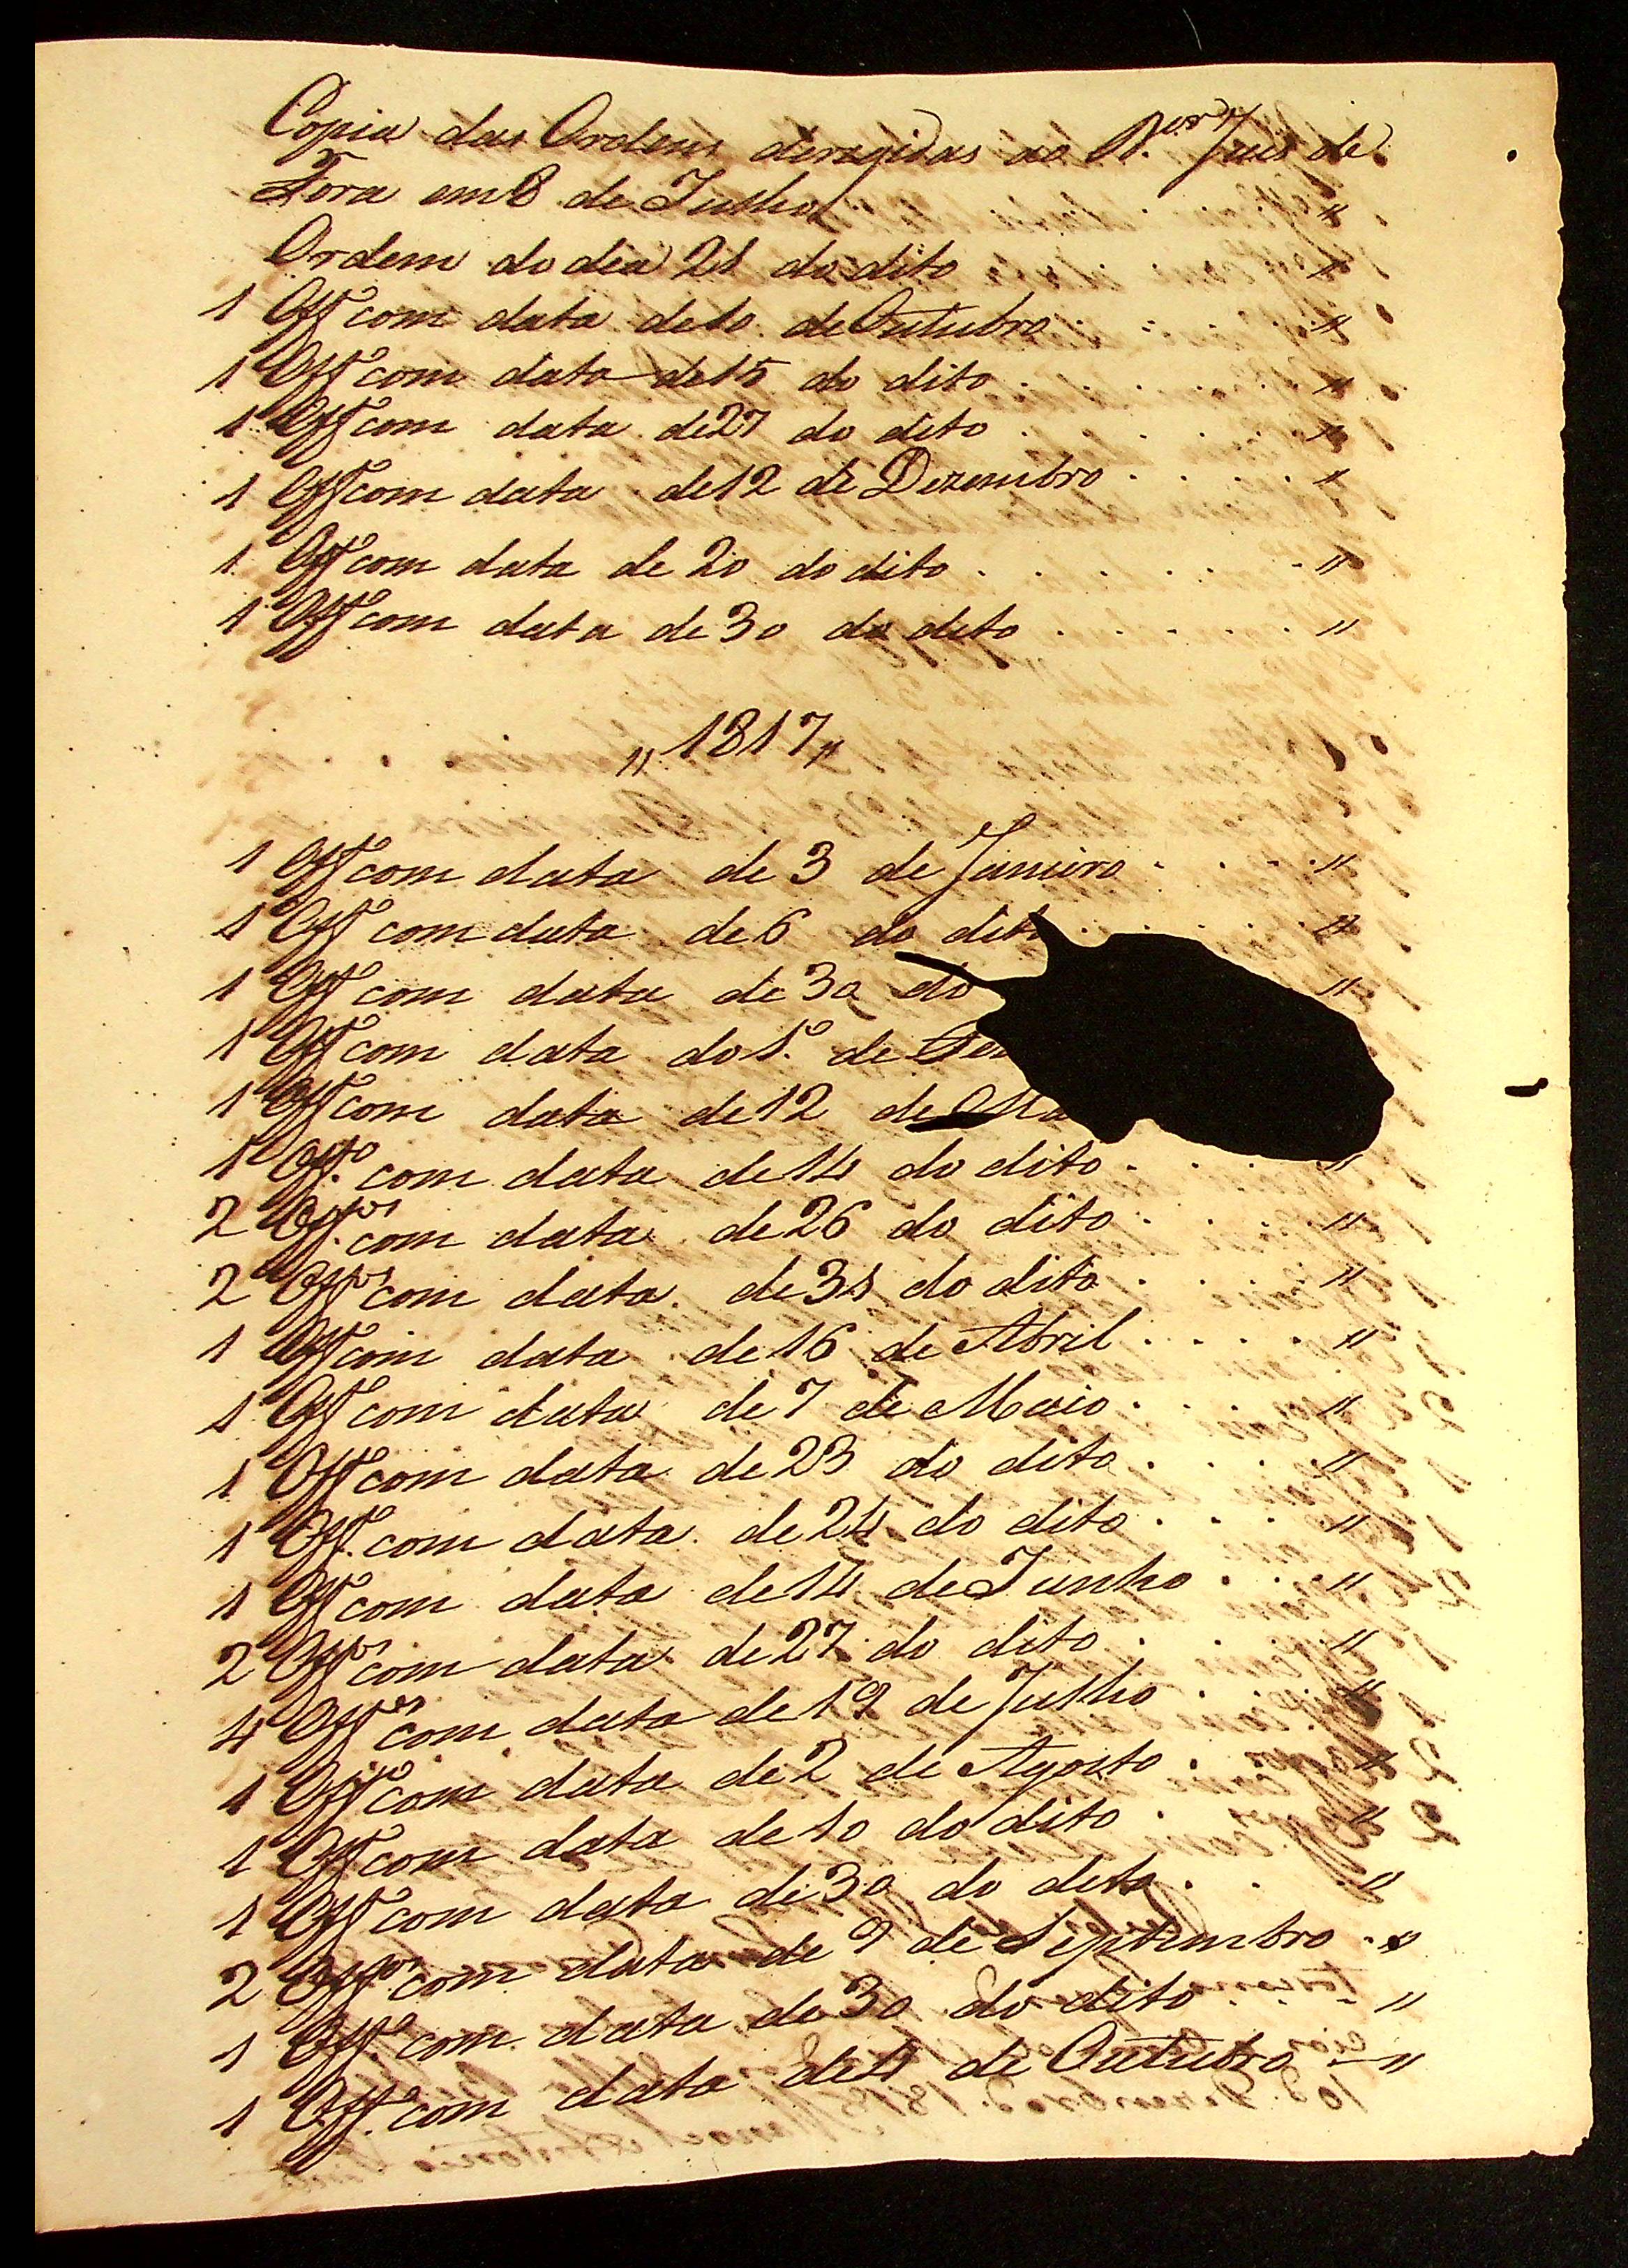 Copia das Ordens deregidas ao D.or Juis de
Fora em 8 de Julho "
Ordem do dia 21 do dito "
1 Off.o com data de 10 de Outubro . . . "
1 Off.o com data de 15 do dito . . . "
1 Off.o com data de 27 do dito . . . "
1 Off.o com data de 12 de Dezembro . . . . "
1 Off.o com data de 20 do dito . . . . . . "
1 Off.o com data de 30 do dito . . . . . "
" 1817 "
1 Off.o com data de 3 de Janeiro . . . . "
1 Off.o com data de 6 do dito . . . . "
1 Off.o com data de 30 do "
1 Off.o com data do 1.o de
1 Off.o com data de 12 de Ma
1 Off.o com data de 14 do dito . . . "
2 Off.os com data de 26 do dito . . . . "
2 Off.os com data de 31 do dito . . . "
1 Off.o com data de 16 de Abril . . . . "
1 Off.o com data de 7 de Maio . . . . "
1 Off.o com data de 23 do dito . . . . "
1 Off.o com data de 24 do dito . . . . "
1 Off.o com data de 14 de Junho . . . "
2 Off.os com data de 27 do dito . . . "
4 Off.os com data de 19 de Julho . . . "
1 Off.o com data de 2 de Agosto . . . "
1 Off.o com data de 10 do dito . . . "
1 Off.o com data de 30 do dito . . . "
2 Off.os com data de 9 de Septembro . "
1 Off.o com data de 30 do dito . . . "
1 Off.o com data de 4 de Outubro - "